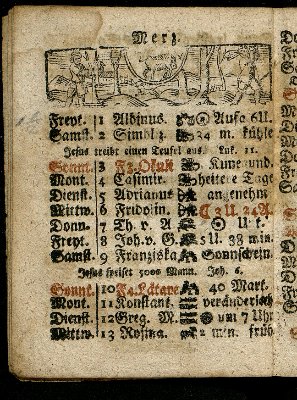 Merz.
Freyt. 1 Albinus. Aufa 6U.
Samst. 2 Simpliz. 34 m. kühle
Jesus treibt einen Teufel aus. Luk. 11.
Sonnt. 3 F3. Okuli
Mont. 4 Casimir. heitere Tage
Dienst. 5 Adrianus angenehm
Mittw. 6 Fridolin. ☾ 3 U. 24 A.
Donn. 7 Th. v. A U. k.
Freyt. 8 Joh. v. G. 5 U. 38 min.
Samst. 9 Franziska Sonnschein.
Jesus speiset 5000 Mann. Joh. 6.
Sonnt. 10 F4. Lätare 40 Mart.
Mont. 11 Konstant. veränderlich
Dienst. 12 Greg. M. um 7 Uhr
Mittw. 13 Rosina. 2 min. früh